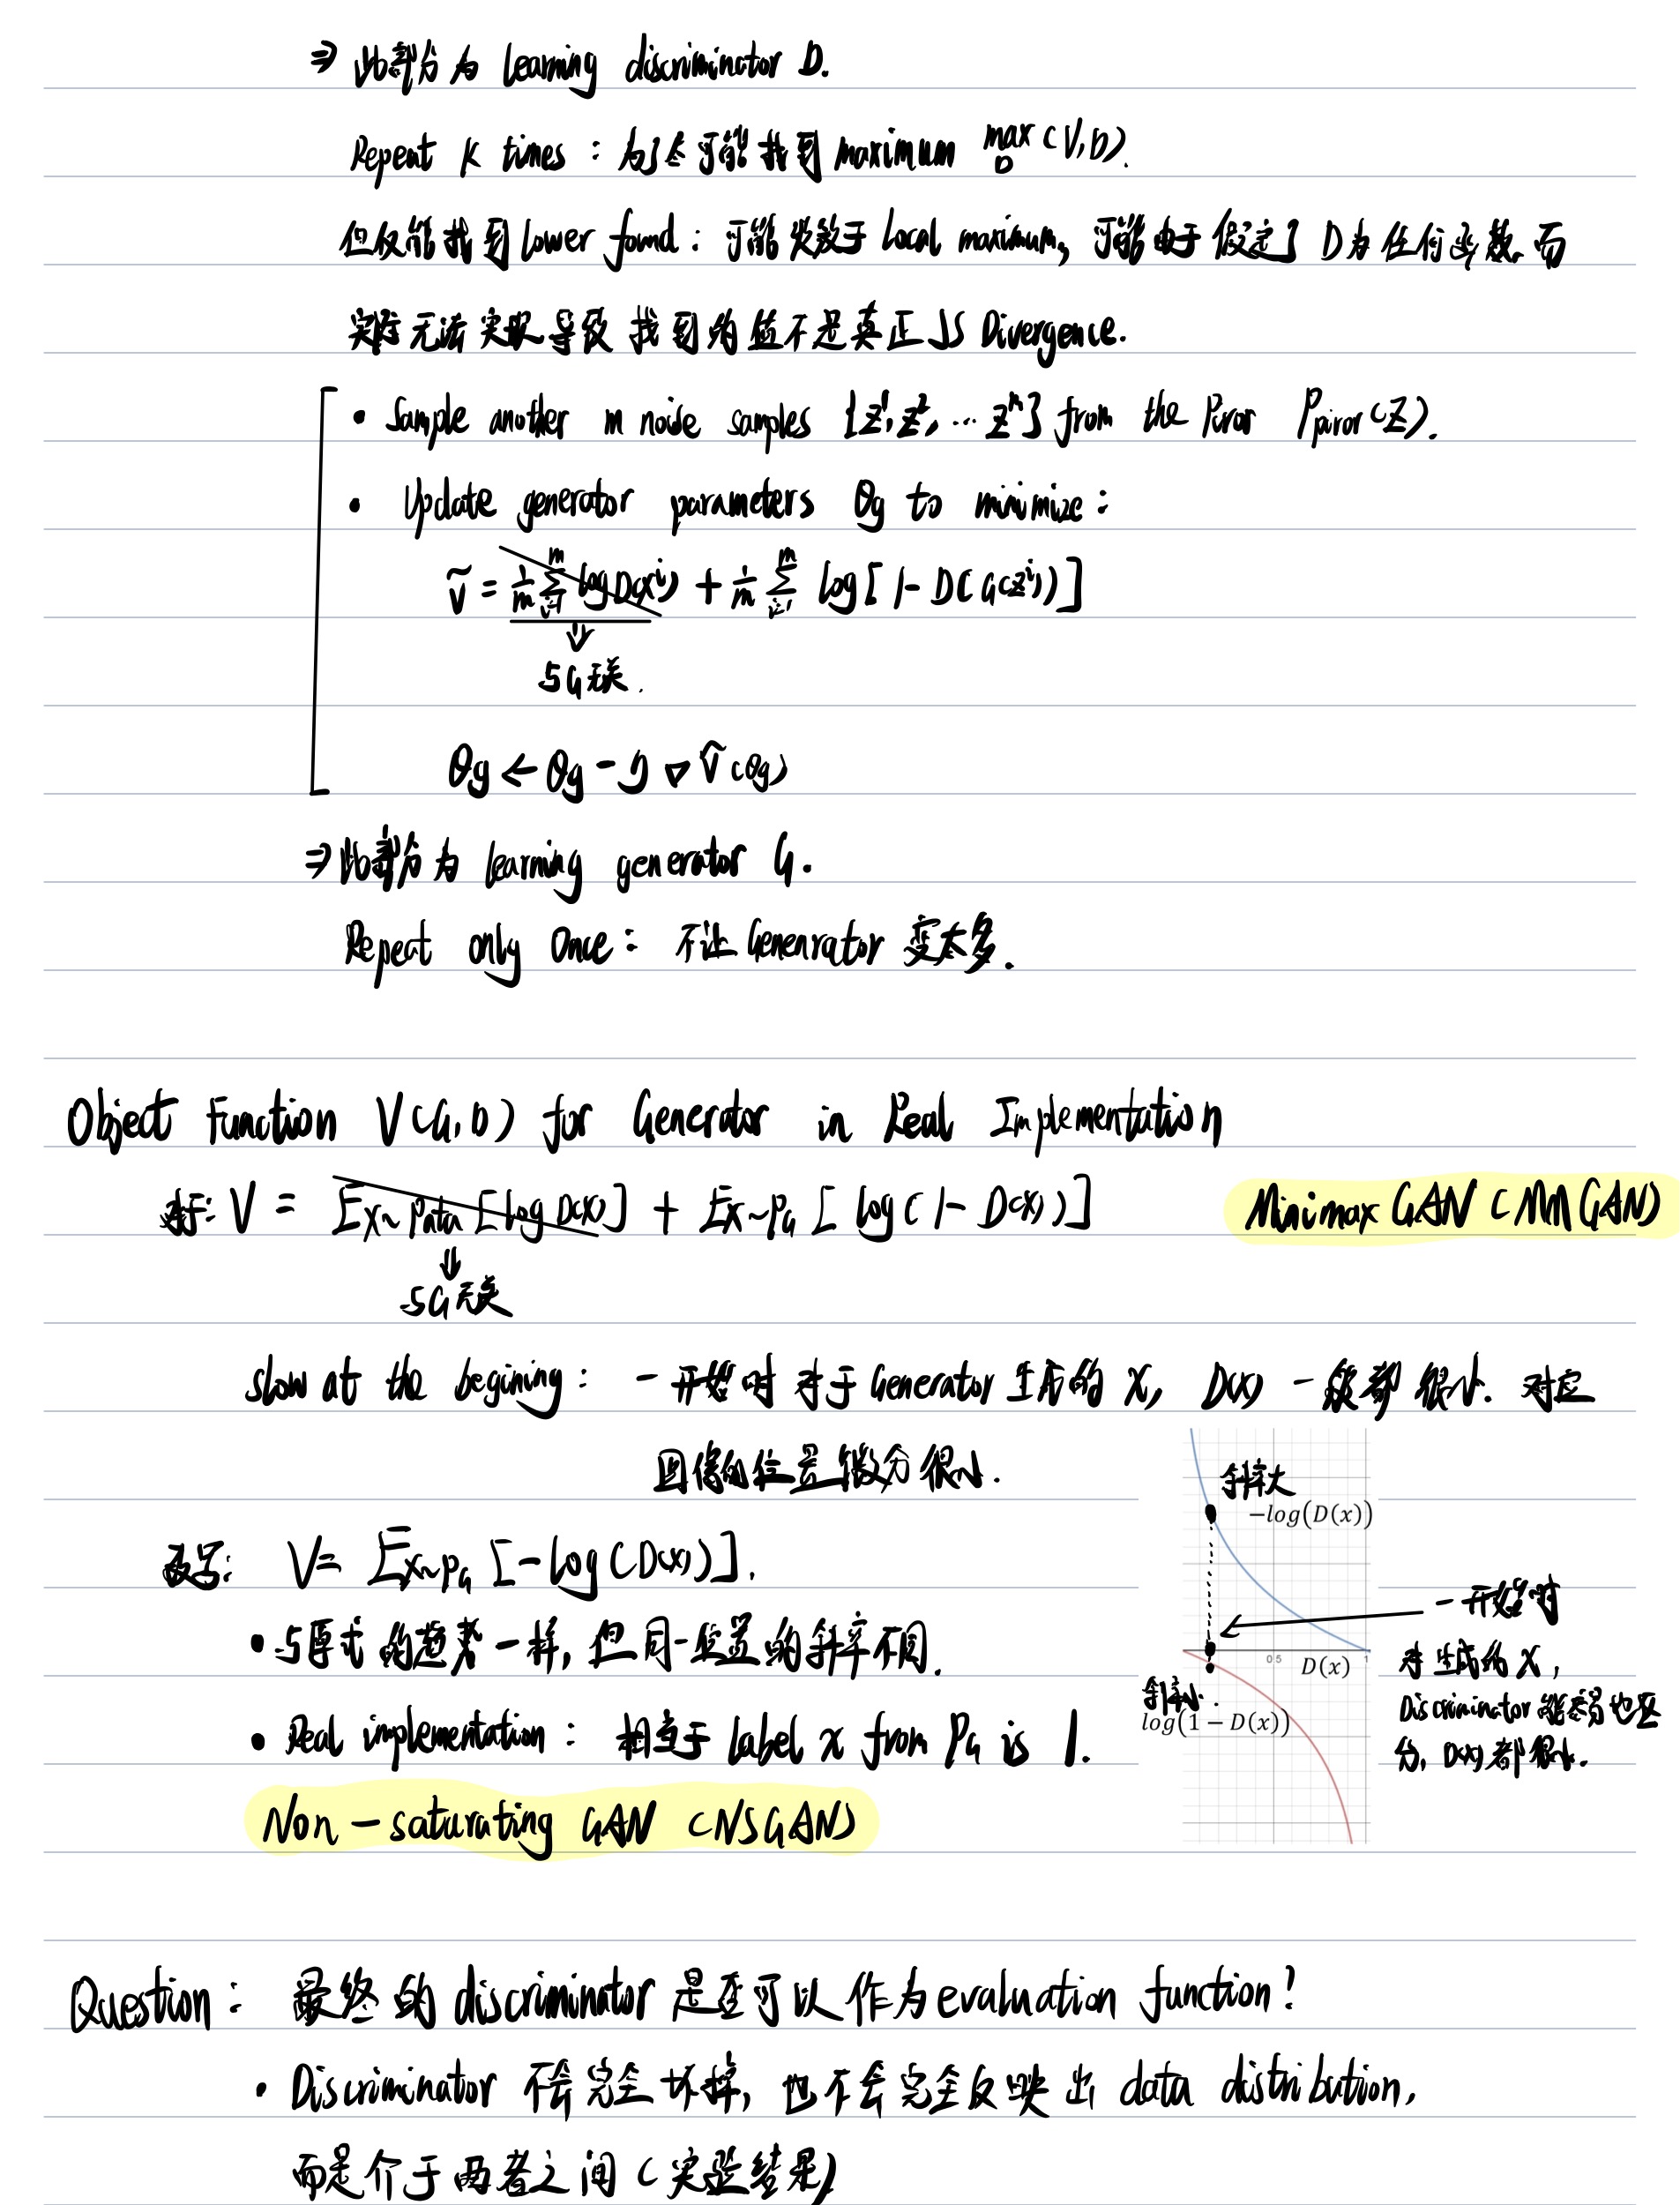 ⇒ 此部分为 learning discriminator D.
Repeat K times : 为了尽可能找到 maximum max_D (V,D).
但仅能找到 lower found : 可能收敛于 Local maximum, 可能由于假定了 D为任何函数, 而
实际无法实现导致找到的值不是真正 JS Divergence.
• Sample another m noise samples {z¹, z², ... zᵐ} from the Piror P_piror(Z).
• Update generator parameters θg to minimize :
Ṽ = 1/m Σ_{i=1}^m log D(xⁱ) + 1/m Σ_{i=1}^m log[1 - D(G(zⁱ))]
⇓
与G无关.
θg ← θg - η ▽ Ṽ(θg)
⇒ 此部分为 learning generator G.
Repeat only Once : 不让 Genenrator 变太多.
Object Function V(G,D) for Generator in Real Implementation
对于: V = E_{x~Pdata} [log D(x)] + E_{x~PG} [log(1 - D(x))]
Minimax GAN (MMGAN)
⇓
与G无关
slow at the begining : 一开始时对于 Generator 生成的 x, D(x) 一般都很小. 对应
图像的位置微分很小.
斜率大
−log(D(x))
改写: V= E_{x~PG} [-log(D(x))].
• 与原式的趋势一样, 但同一位置的斜率不同.
• Real implementation : 相当于 label x from PG is 1.
Non-saturating GAN (NSGAN)
一开始时
0.5 D(x) 1
对生成的 x,
斜率小.
log(1 − D(x))
Discriminator 能容易地区
分, D(x)都很小.
Question : 最终的 discriminator 是否可以作为 evaluation function?
• Discriminator 不会完全坏掉, 也不会完全反映出 data distribution,
而是介于两者之间 (实验结果)